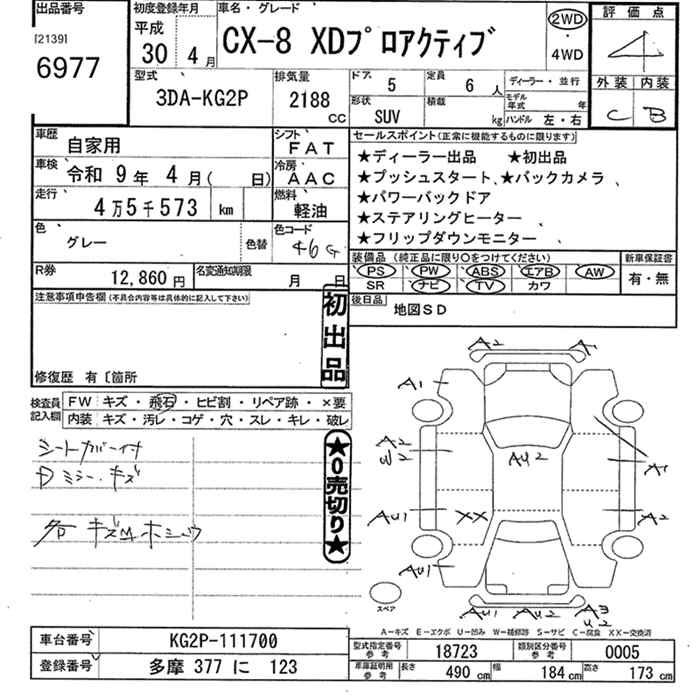 出品番号 初度登録年月 車名・グレード 評価点
[2139] 平成
6977 30年 4月 CX-8 XDプロアクティブ 2WD・4WD 4
型式 排気量 ドア 定員 ディーラー・並行 外装 内装
3DA-KG2P 2188cc 5 6人 モデル年式 年 C B
形状 積載
SUV kg ハンドル 左・右
車歴 自家用 シフト FAT セールスポイント(正常に機能するものに限ります)
車検 令和 9年 4月( 日) 冷房 AAC ★ディーラー出品 ★初出品
★プッシュスタート、★バックカメラ、
走行 4万5千573 km 燃料 軽油 ★パワーバックドア
★ステアリングヒーター
色 グレー 色替 色コード 46G ★フリップダウンモニター
装備品(純正品に限り〇をつけてください) 新車保証書
R券 12,860円 名変通知期限 月 日 PS PW ABS エアB AW 有・無
SR ナビ TV カワ
注意事項申告欄(不具合内容等は具体的に記入して下さい) 後日品 地図SD
初出品
修復歴 有〔箇所
検査員記入欄 FW キズ・飛石・ヒビ割・リペア跡・×要
内装 キズ・汚レ・コゲ・穴・スレ・キレ・破レ
シートカバー付
Dミラーキズ
各キズMホシュウ
★0売切り★
A2 A1
A1
A2
W2 AU2 A1
AU1 XX A2
AU1
スペア AU1 AU2 A3
U2
A-キズ E-エクボ U-凹み W-補修跡 S-サビ C-腐食 XX-交換済
車台番号 KG2P-111700 型式指定番号参考 18723 類別区分番号参考 0005
登録番号 多摩 377 に 123 車庫証明用参考 長さ 490cm 幅 184cm 高さ 173cm